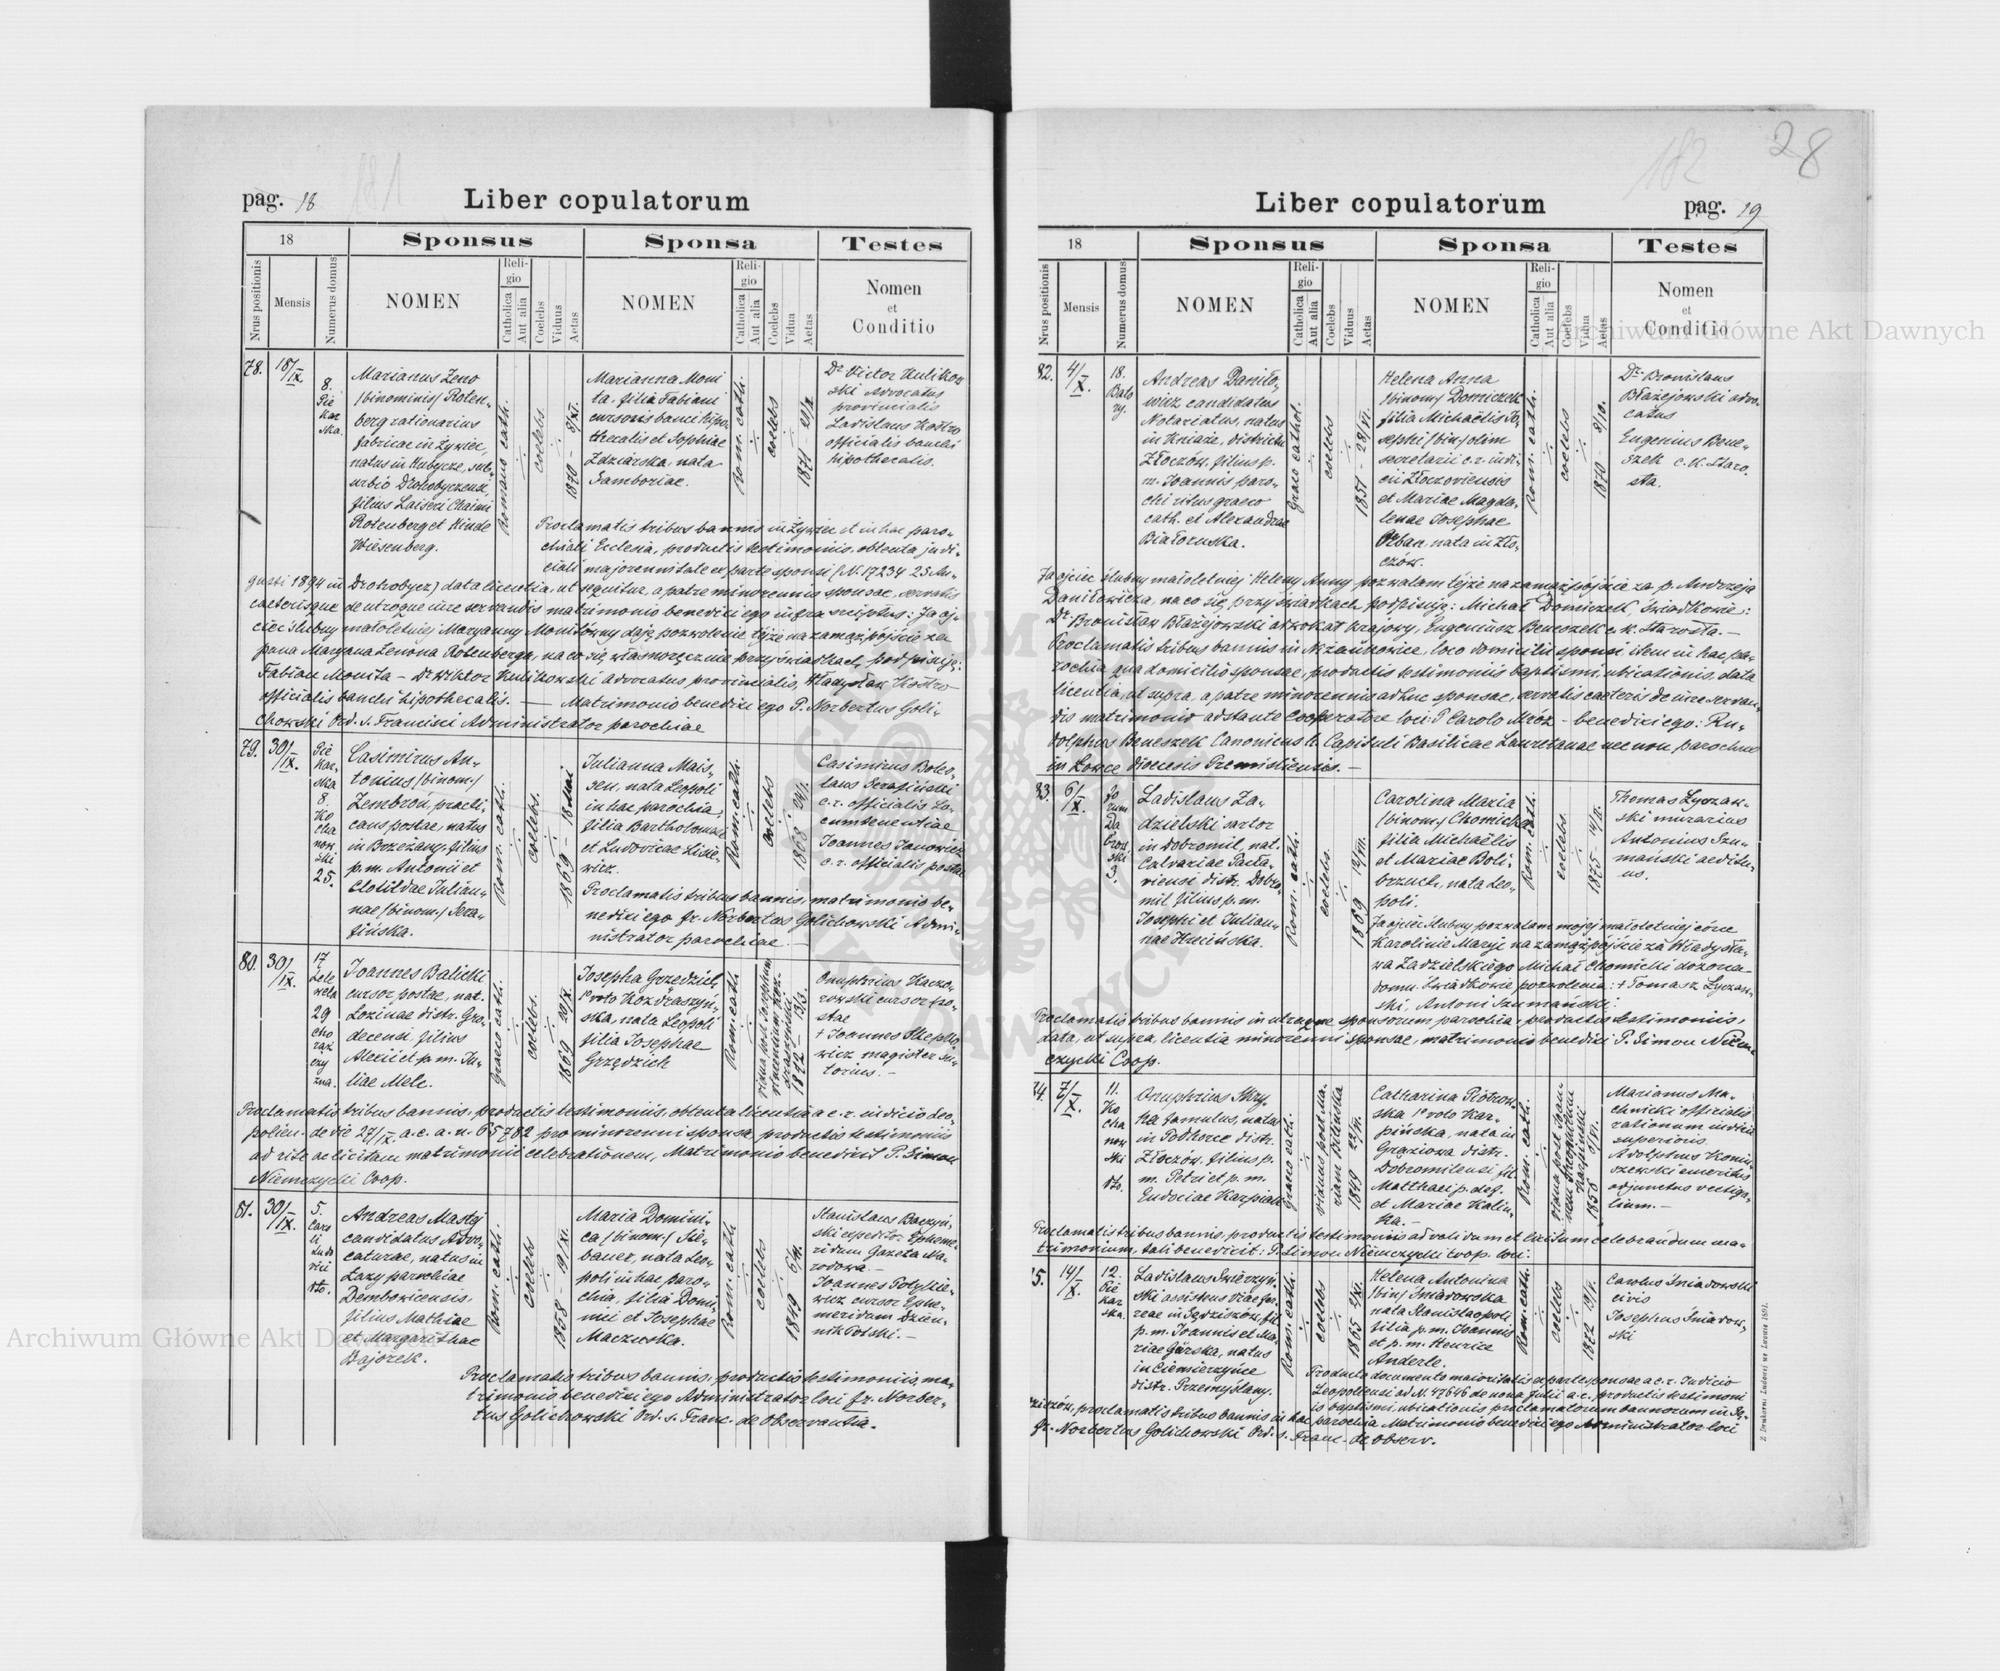 pag. 18
181
Liber copulatorum
18
Sponsus
Sponsa
Testes
Nrus positionis
Mensis
Numerus domus
NOMEN
Religio
Catholica
Aut alia
Coelebs
Viduus
Aetas
NOMEN
Religio
Catholica
Aut alia
Coelebs
Vidua
Aetas
Nomen
et
Conditio
78.
18/IX.
8.
Pie
kar
ska.
Marianus Zeno
/binominis/ Roten-
berg rationarius
fabricae in Żywiec,
natus in Hubycze, sub-
urbio Drohobyczensi,
filius Laiseri Chaimi
Rotenberg et Hinde
Wiesenberg.
Romano cath.
coelebs
1870 - 8/XI.
Marianna Moni
ta, filia Fabiani
cursoris banci hipo-
thecalis et Sophiae
Zdziarska, nata
Samboriae.
Rom. cath.
coelebs
Dr Victor Kulikow
ski Advocatus
provincialis
Ladislaus Kostro
officialis banchi
hipothecalis.
Proclamatis tribus bannis in Żywiec et in hac paro-
chiali Ecclesia, productis testimoniis, obtenta judi-
ciali majorennitate ex parte sponsi (N. 17234 25 Au-
gusti 1894 in Drohobycz) data licentia, ut sequitur, a patre minorennis sponsae, servatis
caeterisque de utroque iure servandis matrimonio benedixi ego infra scriptus: Ja oj-
ciec ślubny małoletniej Maryanny Monitówny daję pozwolenie tejże na zamążpójście za
pana Maryana Zenona Rotenberga, na co się własnoręcznie przy świadkach podpisuję:
Fabian Monita - Dr Wiktor Kulikowski advocatus provincialis, Władysław Kostro
officialis banchi hipothecalis. — Matrimonio benedixi ego P. Norbertus Goli-
chowski Ord. s. Francisci Administrator parochiae
79.
30/IX.
Pie
kar-
ska
8.
Ko
cha
now
ski
25.
Casimirus An-
tonius /binom./
Zembroń, practi-
cans postae, natus
in Brzeżany, filius
p. m. Antonii et
Clotildae Julian-
nae /binom./ Sera-
fińska.
Rom. cath.
coelebs.
1869 - 18 Mai
Julianna Mais-
sen, nata Leopoli
in hac parochia,
filia Bartholomaei
et Ludovicae Lisie-
wicz.
Rom. cath.
coelebs
1868
Casimirus Boles-
laus Serafiński
c. r. officialis Lo-
cumtenentiae
Joannes Janowicz
c. r. officialis postae
Proclamatis tribus bannis, matrimonio be-
nedixi ego fr. Norbertus Golichowski Admi-
nistrator parochiae. —
80.
30/IX.
17
Lele
wela
29
Cho
rąż
czy
zna.
Joannes Balicki
cursor postae, nat.
Lozinae distr. Gro-
decensi, filius
Alexii et p. m. Ju-
liae Mele.
Graeco cath.
coelebs.
1869 20/X.
Josepha Grzedzich,
1o voto Kozdraszyń-
ska, nata Leopoli
filia Josephae
Grzędzich
Rom. cath
vidua post Josephum
1872 - 13/3.
Onuphrius Kaczo-
rowski cursor po-
stae
+ Joannes Stepho
wicz magister su-
torius. —
Proclamatis tribus bannis, productis testimoniis, obtenta licentia a c. r. iudicio Leo-
polien. de die 27/IX. a. c. a. n. 65782 pro minorenni sponsa, productis testimoniis
ad rite ac licitam matrimonii celebrationem, Matrimonio benedixit P. Simon
Niemczycki Coop.
81.
30/IX.
5.
Caro
li
Ludo
vici
Nro.
Andreas Mastej
candidatus Advo-
caturae, natus in
Łazy parochiae
Dembowicensis,
filius Mathiae
et Margarithae
Bajorek.
Rom. cath.
coelebs
1858 - 19/XI.
Maria Domini-
ca /binom./ Sie-
bauer, nata Leo-
poli in hac paro-
chia, filia Domi-
nici et Josephae
Maczewska.
Rom. cath
coelebs
Stanislaus Baczyń-
ski expeditor Epheme-
ridum Gazeta Na-
rodowa. —
Joannes Potykie-
wicz cursor Ephe-
meridum Dzien-
nik Polski. —
Proclamatis tribus bannis, productis testimoniis, ma-
trimonio benedixi ego Administrator loci fr. Norber-
tus Golichowski Ord. s. Franc. de Observantia.
28
182
Liber copulatorum
pag. 19
18
Sponsus
Sponsa
Testes
Nrus positionis
Mensis
Numerus domus
NOMEN
Religio
Catholica
Aut alia
Coelebs
Viduus
Aetas
NOMEN
Religio
Catholica
Aut alia
Coelebs
Vidua
Aetas
Nomen
et
Conditio
82.
4/X.
18.
Bato
ry.
Andreas Daniło-
wicz candidatus
Notariatus, natus
in Kniaże, districtu
Złoczów, filius p.
m. Joannis paro-
chi ritus graeco
cath. et Alexandrae
Białoruska.
Graeco cathol.
coelebs
1857 - 28/VI.
Helena Anna
/binom/ Domiczek
filia Michaëlis Jo-
sephi /bin/ olim
secretarii c. r. iudi-
cii Złoczoviensis
et Mariae Magda-
lenae Josephae
Orban nata in Zło-
czów.
Rom. cath.
coelebs
1870 - 8/10.
Dr. Bronislaus
Błażejowski advo-
catus
Eugenius Bene-
szek c. k. Staro-
sta.
Ja ojciec ślubny małoletniej Heleny Anny pozwalam tejże na zamążpójście za p. Andrzeja
Daniłowicza, na co się przy świadkach podpisuję: Michał Domiczek Świadkowie:
Dr Bronisław Błażejowski adwokat krajowy, Eugeniusz Beneszek c. k. Starosta. —
Proclamatis tribus bannis in Niżankowice, loco domicilii sponsi item in hac pa-
rochia qua domicilio sponsae, productis testimoniis baptismi, ubicationis, data
licentia, ut supra, a patre minorennis adhuc sponsae, servatis caeteris de iure servan-
dis matrimonio adstante Cooperatore loci: P. Carolo Mróz - benedixi ego: Ru-
dolphus Beneszek Canonicus h. Capituli Basilicae Lauretanae nec non parochus
in Łowce dioecesis Premisliensis. —
83.
6/X.
Jo
rum
Da
brow
ski
3.
Ladislaus Za-
dzielski sartor
in Dobromil, nat.
Calvariae Pacła-
viensi distr. Dobro-
mil filius p. m.
Josephi et Julian-
nae Hrecińska.
Rom. cath.
coelebs.
1869 12/VII.
Carolina Maria
/binom/ Chomicka
filia Michaëlis
et Mariae Boli-
brzuch, nata Leo-
poli.
Rom. cath.
coelebs
1875 - 14/II.
Thomas Łyczaw-
ski murarius
Antonius Szu-
mański aeditu-
us.
Ja ojciec ślubny pozwalam mojej małoletniej córce
Karolinie Maryi na zamążpójście za Władysła-
wa Zadzielskiego Michał Chomicki dozorca
domu. Świadkowie pozwolenia: + Tomasz Łyczaw-
ski, Antoni Szumański:
Proclamatis tribus bannis in utraque sponsorum parochia, productis testimoniis,
data, ut supra, licentia minorenni sponsae, matrimonio benedixi P. Simon Niem-
czycki Coop.
84.
7/X.
11.
Ko
cha
now
ski
Nro.
Onuphrius Stry-
ha famulus, natus
in Podhorce distr.
Złoczów, filius p.
m. Petri et p. m.
Eudociae Karpiak
Graeco cath.
viduus post Ma-
riam Bilińska
1849 22/VI.
Catharina Piotrow-
ska 1o voto Kar-
pińska, nata in
Grąziowa distr.
Dobromilensi fil.
Matthaei p. def.
et Mariae Kalin-
ka. —
Rom. cath.
1856
Marianus Ma-
chnicki officialis
rationum iudicii
superioris
Adolphus Koniu
szewski emeritus
adjunctus vectiga-
lium. —
Proclamatis tribus bannis, productis testimoniis ad validum et licitum celebrandum ma-
trimonium, tali benedixit: P. Simon Niemczycki Coop. loci.
85.
14/X.
12.
Pie
kar
ska.
Ladislaus Swierzyń-
ski assistens viae fer-
reae in Sędziszów, fil.
p. m. Joannis et Ma-
riae Górska, natus
in Ciemierzyńce
distr. Przemyślany.
Rom. cath.
coelebs
1865
Helena Antonina
/bin/ Śniadowska
nata Stanislaopoli
filia p. m. Joannis
et p. m. Henricae
Anderle.
Rom. cath.
coelebs
1872 19/V.
Carolus Śniadowski
civis
Josephus Śniadow-
ski
Producto documento maioritatis ex parte sponsae a c. r. Iudicio
Leopoliensi ad N. 47646 de nona Julii a. c., productis testimoni
is baptismi, ubicationis, proclamatorum bannorum in Sę-
dziszów, proclamatis tribus bannis in hac parochia Matrimonio benedixi ego Administrator loci
fr. Norbertus Golichowski Ord. s. Franc. de observ.
Z Drukarni Ludowej we Lwowie 1891.
Archiwum Główne Akt Dawnych
Archiwum Główne Akt Dawnych